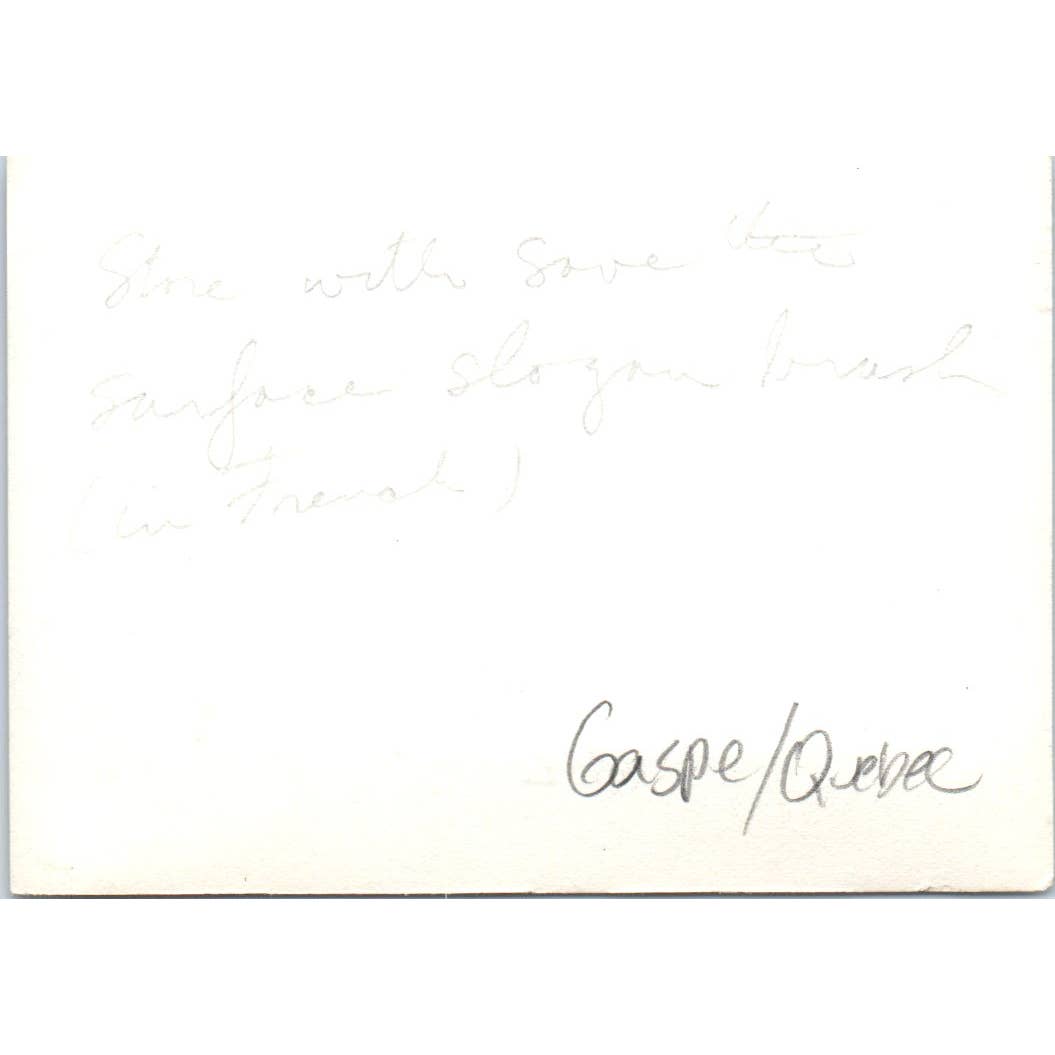 Store with Save the
surface slogan brush
(in French)
Gaspe/Quebec